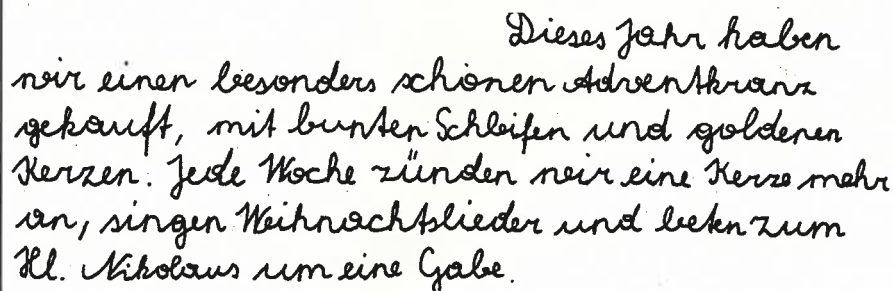 Dieses Jahr haben
wir einen besonders schönen Adventkranz
gekauft, mit bunten Schleifen und goldenen
Kerzen. Jede Woche zünden wir eine Kerze mehr
an, singen Weihnachtslieder und beten zum
Hl. Nikolaus um eine Gabe.